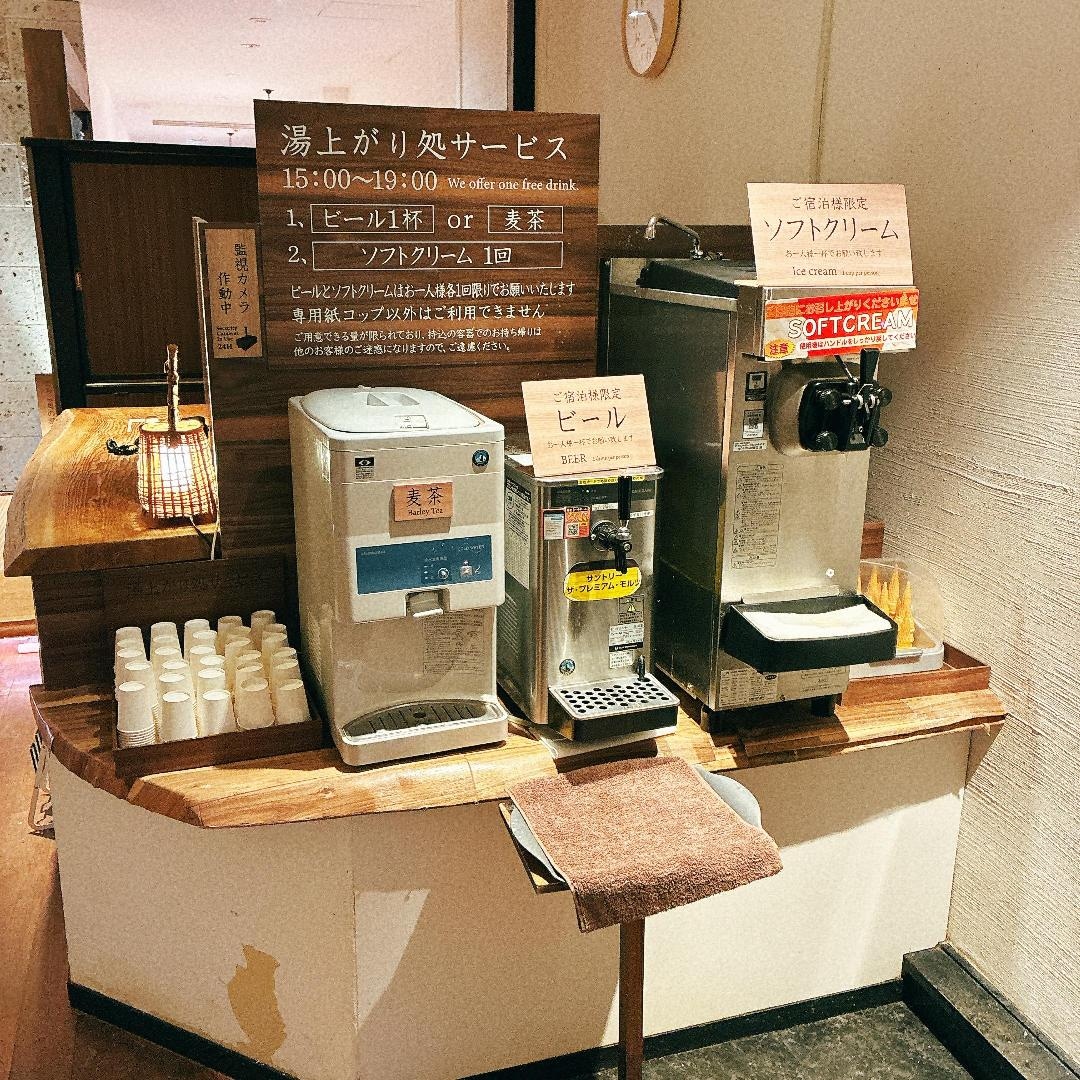 湯上がり処サービス
15:00～19:00 We offer one free drink.
1、 ビール1杯 or 麦茶
2、 ソフトクリーム 1回
ビールとソフトクリームはお一人様各1回限りでお願いいたします
専用紙コップ以外はご利用できません
ご用意できる量が限られており、持込の容器でのお持ち帰りは
他のお客様のご迷惑になりますので、ご遠慮ください。
監視カメラ
作動中
Security
Camera
in Use
24H
麦茶
Barley Tea
ご宿泊様限定
ビール
お一人様一杯でお願い致します
BEER
サントリー
ザ・プレミアム・モルツ
ご宿泊様限定
ソフトクリーム
お一人様一杯でお願い致します
Ice cream 1 cup per person
お召し上がりくださいませ
SOFTCREAM
注意 使用後はハンドルをしっかり戻してください